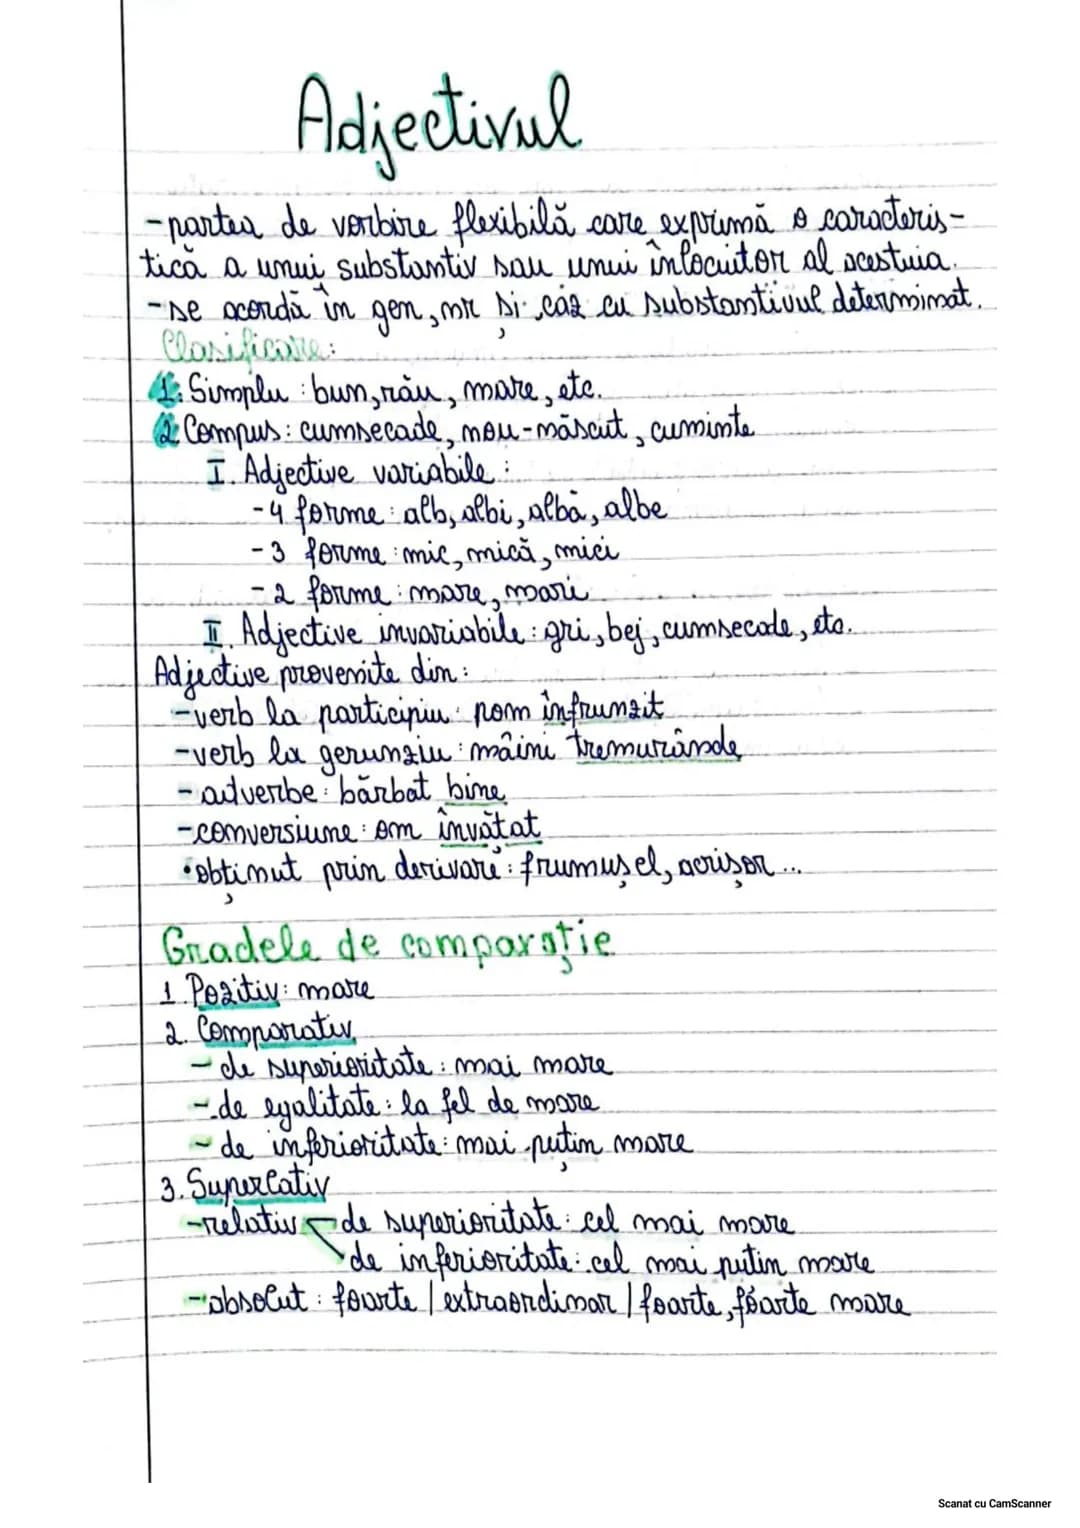 Adjectivul
-partea de vorbire flexibilă care exprimă o caracteris-
tică a unui substantiv sau unui înlocuitor al acestuia.
-se acordă în gen, nr și caz cu substantivul determinat.
Clasificare:
1. Simplu: bun, rău, mare, etc.
2. Compus: cumsecade, nou-născut, cuminte
I. Adjective variabile:
-4 forme: alb, albi, albă, albe
-3 forme: mic, mică, mici
-2 forme: mare, mari
II. Adjective invariabile: gri, bej, cumsecade, etc.
Adjective provenite din:
-verb la participiu: pom înfrunzit
-verb la gerunziu: mâini tremurânde
-adverbe: bărbat bine
-conversiune: om învățat
•obținut prin derivare: frumușel, acrișor...
Gradele de comparație
1. Pozitiv: mare
2. Comparativ
-de superioritate: mai mare
-de egalitate: la fel de mare
-de inferioritate: mai puțin mare
3. Superlativ
-relativ de superioritate: cel mai mare
de inferioritate: cel mai puțin mare
-absolut: foarte / extraordinar / foarte, foarte mare
Scanat cu CamScanner